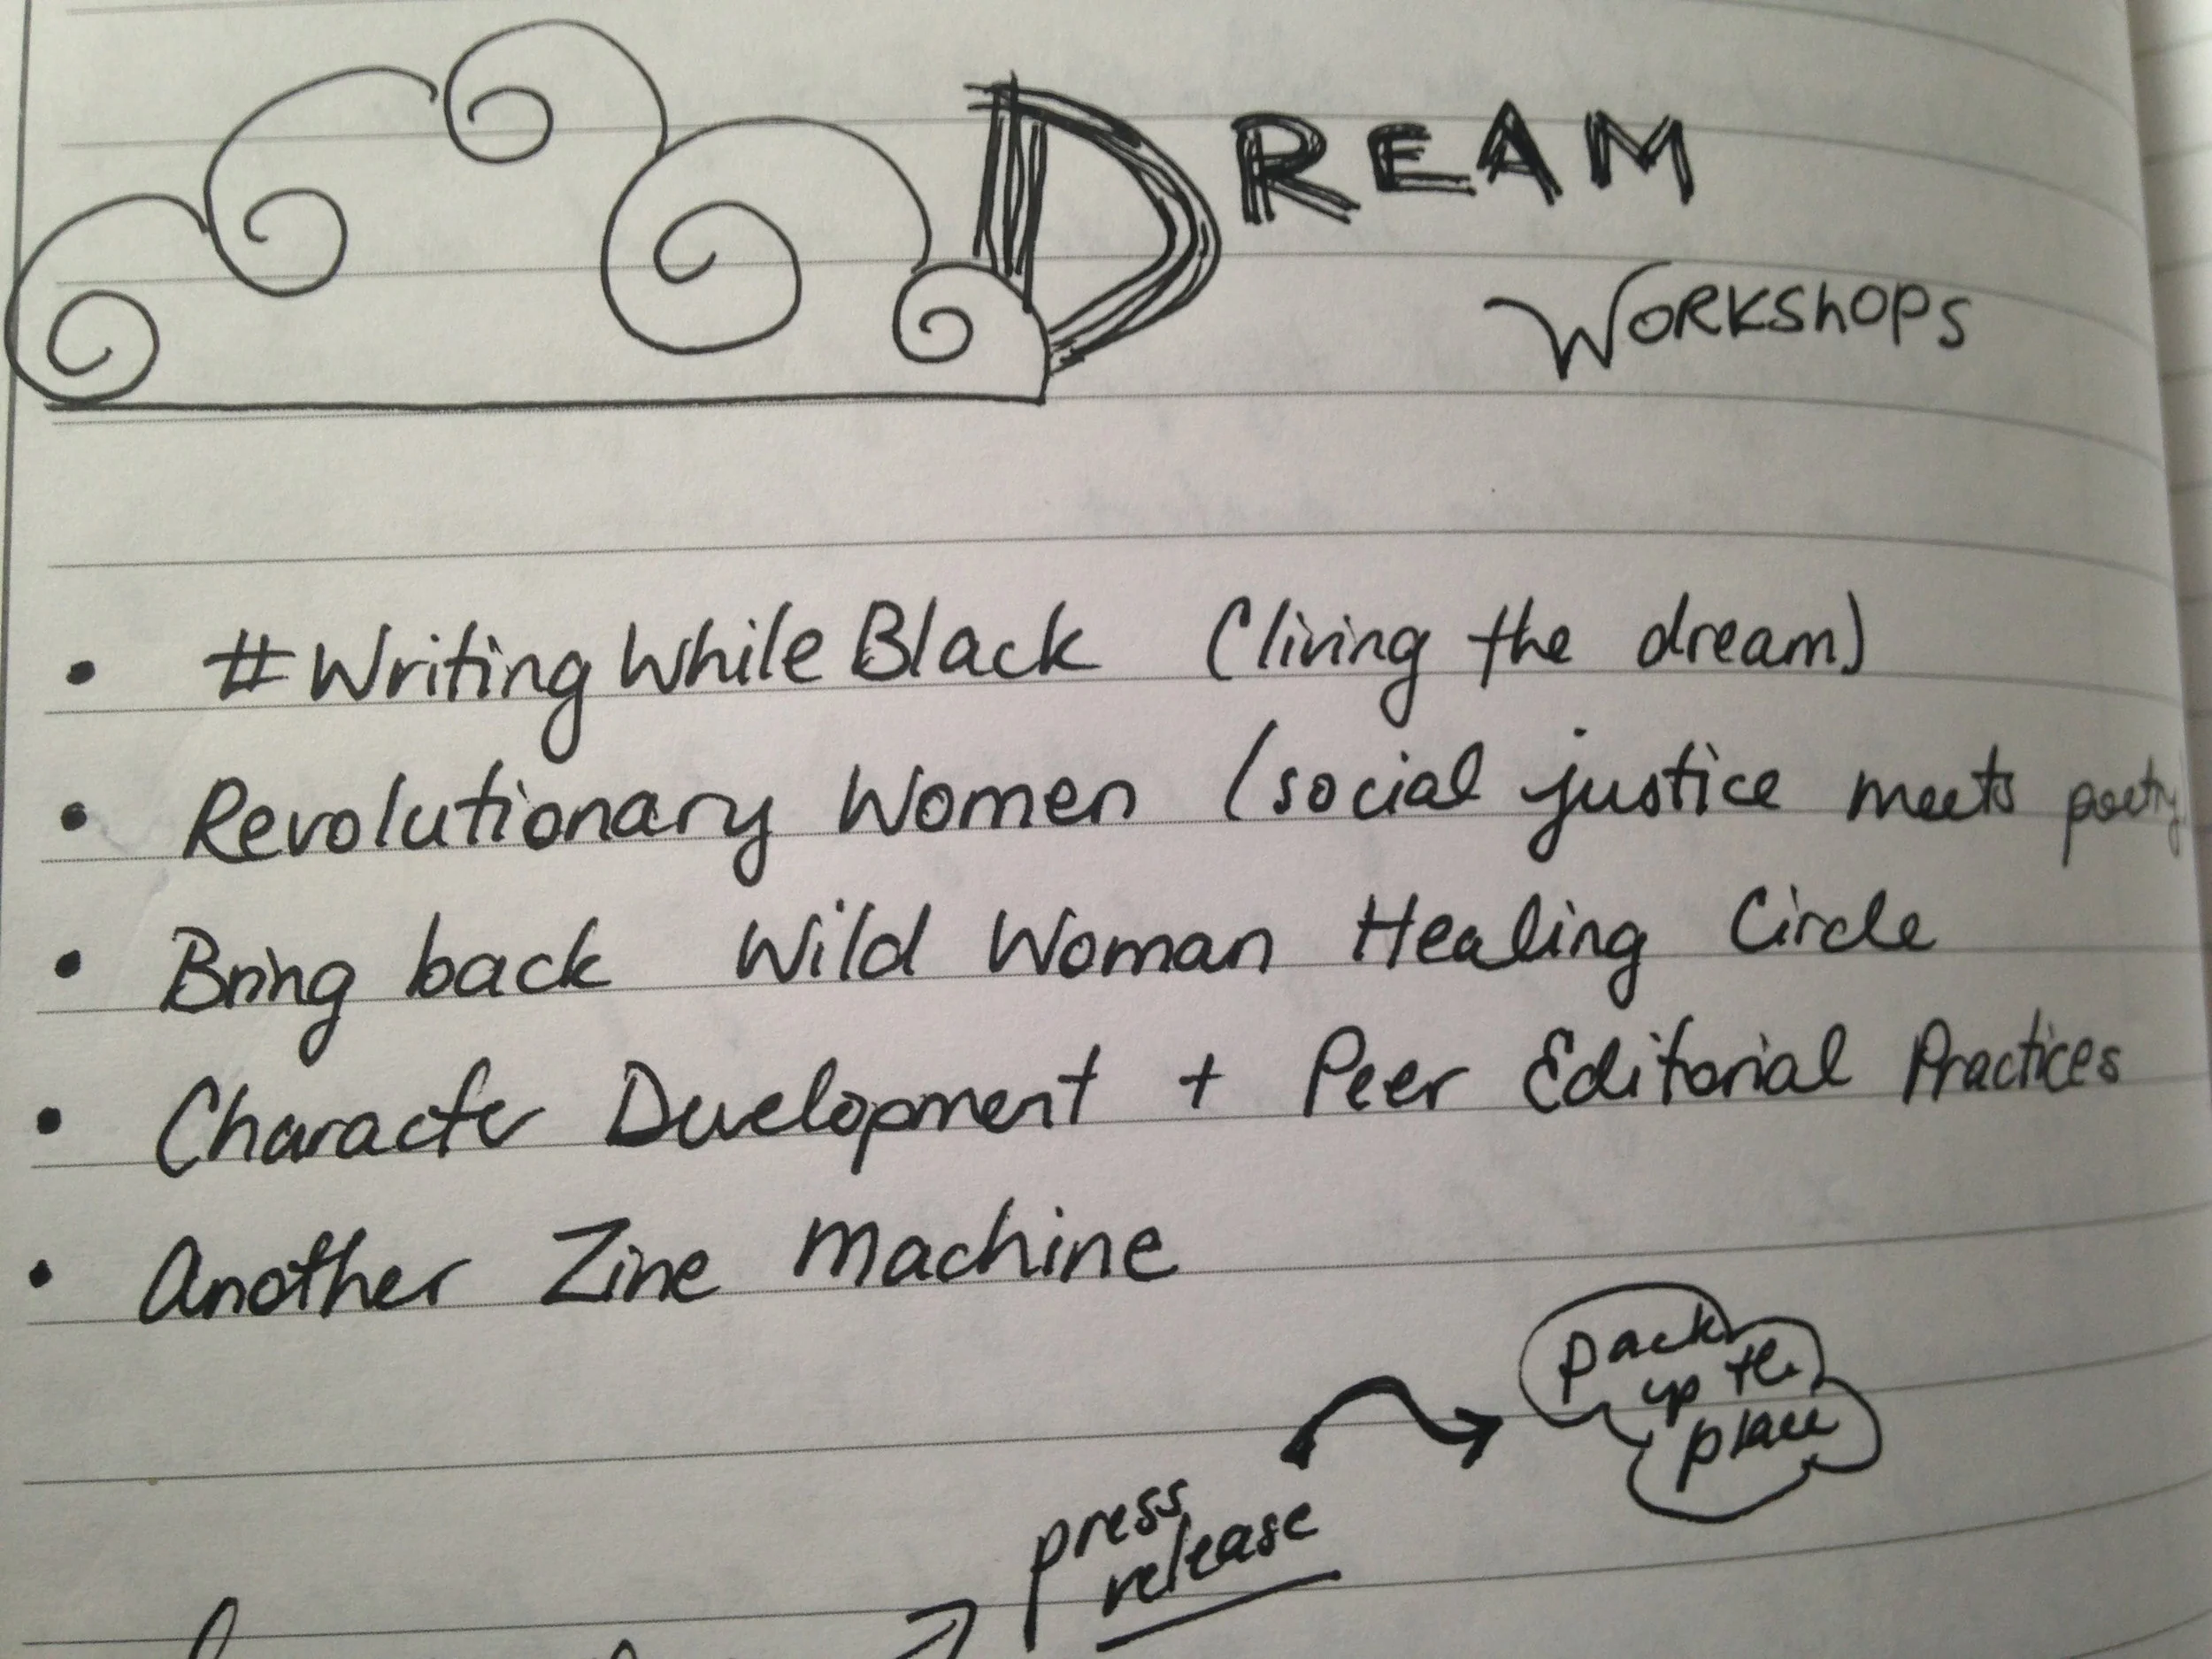 DREAM
WORKSHOPS
• #WritingWhileBlack (living the dream)
• Revolutionary Women (social justice meets poetry
• Bring back Wild Woman Healing Circle
• Character Development + Peer Editorial Practices
• Another Zine Machine
pack
up the
place
press
release